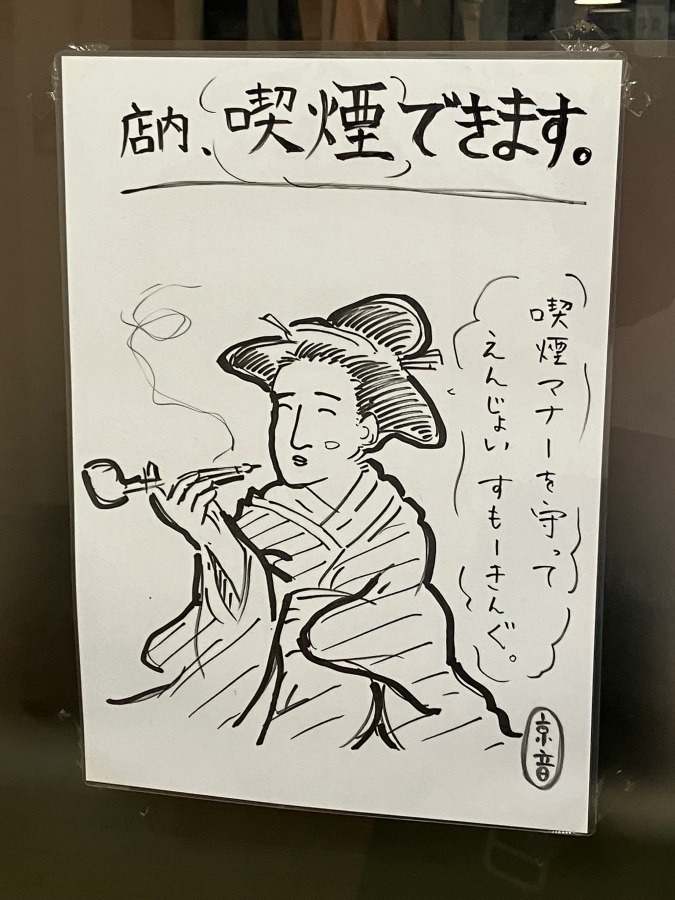 店内、喫煙できます。
喫煙マナーを守って
えんじょい すもーきんぐ。
京音